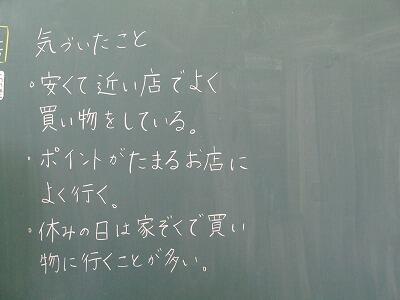 気づいたこと
・安くて近い店でよく
買い物をしている。
・ポイントがたまるお店に
よく行く。
・休みの日は家ぞくで買い
物に行くことが多い。